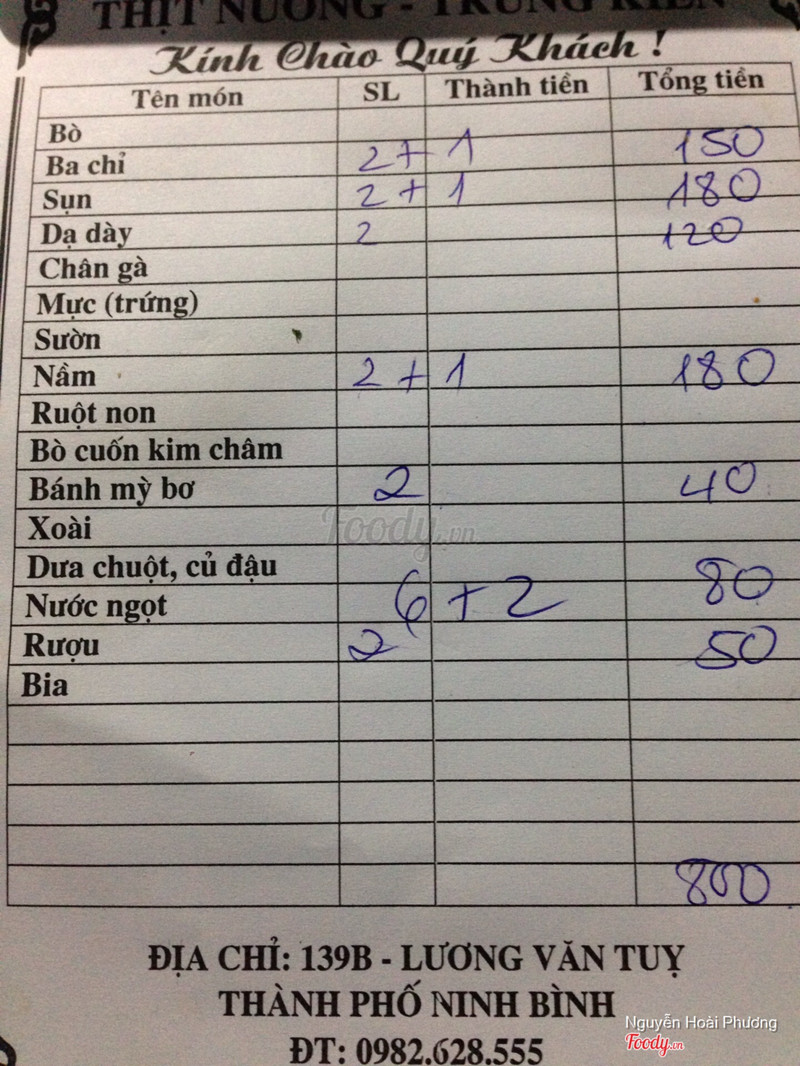 THỊT NƯỚNG - TRUNG KIÊN
Kính Chào Quý Khách !
Tên món SL Thành tiền Tổng tiền
Bò
Ba chỉ 2 + 1 150
Sụn 2 + 1 180
Dạ dày 2 120
Chân gà
Mực (trứng)
Sườn
Nầm 2 + 1 180
Ruột non
Bò cuốn kim châm
Bánh mỳ bơ 2 40
Xoài
Foody.vn
Dưa chuột, củ đậu
Nước ngọt 6 + 2 80
Rượu 2 50
Bia
800
ĐỊA CHỈ: 139B - LƯƠNG VĂN TUỴ
THÀNH PHỐ NINH BÌNH
Nguyễn Hoài Phương
ĐT: 0982.628.555
Foody.vn